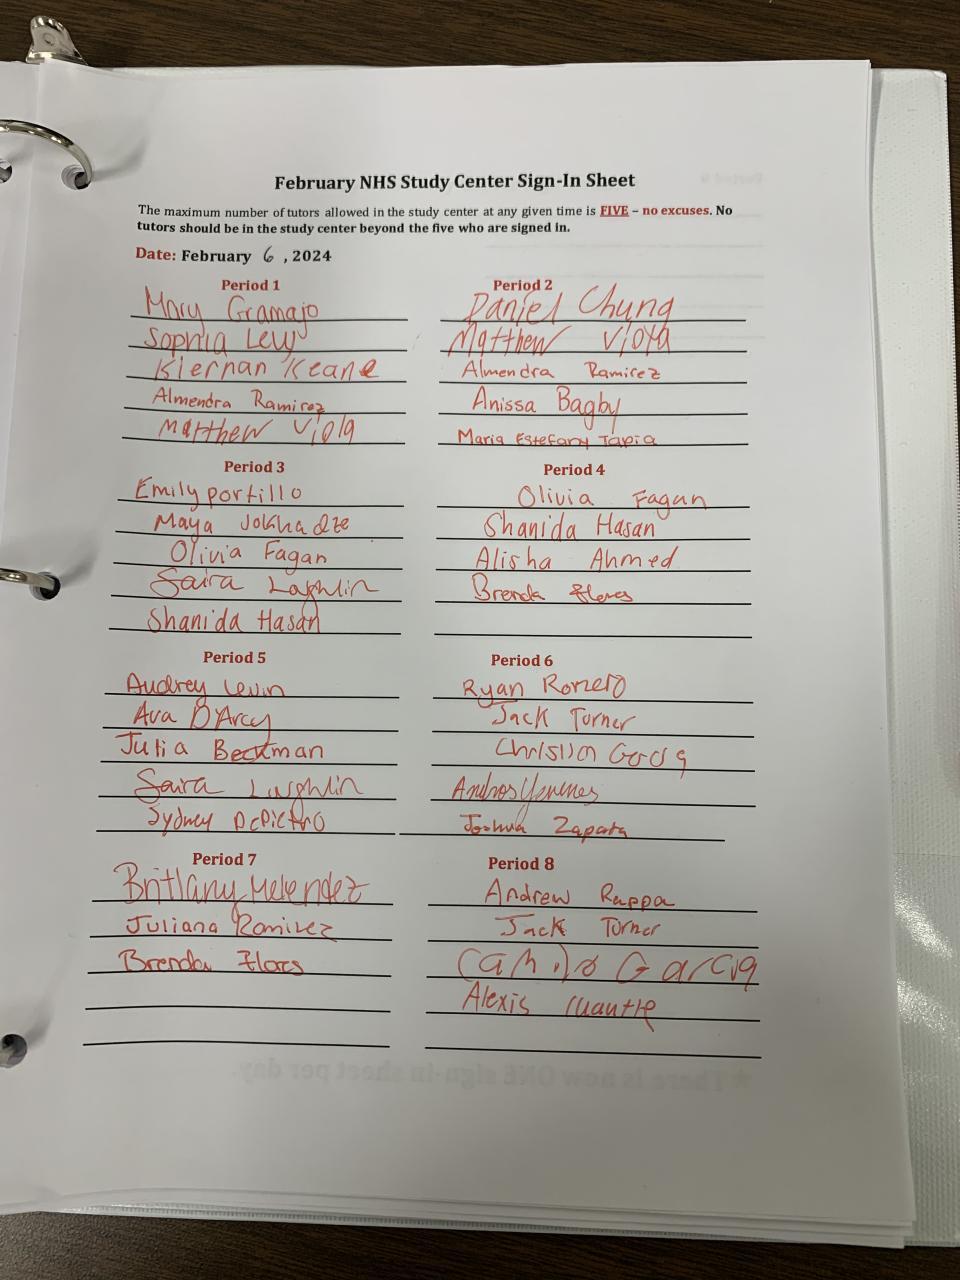 February NHS Study Center Sign-In Sheet
The maximum number of tutors allowed in the study center at any given time is FIVE – no excuses. No
tutors should be in the study center beyond the five who are signed in.
Date: February 6, 2024
Period 1
Mary Gramajo
Sophia Levy
Kiernan Keane
Almendra Ramirez
Matthew Viola
Period 2
Daniel Chung
Matthew Viola
Almendra Ramirez
Anissa Bagby
Maria Estefany Tapia
Period 3
Emily portillo
Maya Jokhadze
Olivia Fagan
Saira Laghlin
Shanida Hasan
Period 4
Olivia Fagan
Shanida Hasan
Alisha Ahmed
Brenda Flores
Period 5
Audrey Levin
Ava D'Arcy
Julia Beckman
Saira
Sydney DePietro
Period 6
Ryan Romero
Jack Turner
Christian
Joshua Zapata
Period 7
Brittany Melendez
Juliana Ramirez
Brenda Flores
Period 8
Andrew Rappa
Jack Turner
Camilo Garcia
Alexis
★ There is now ONE sign-in sheet per day.